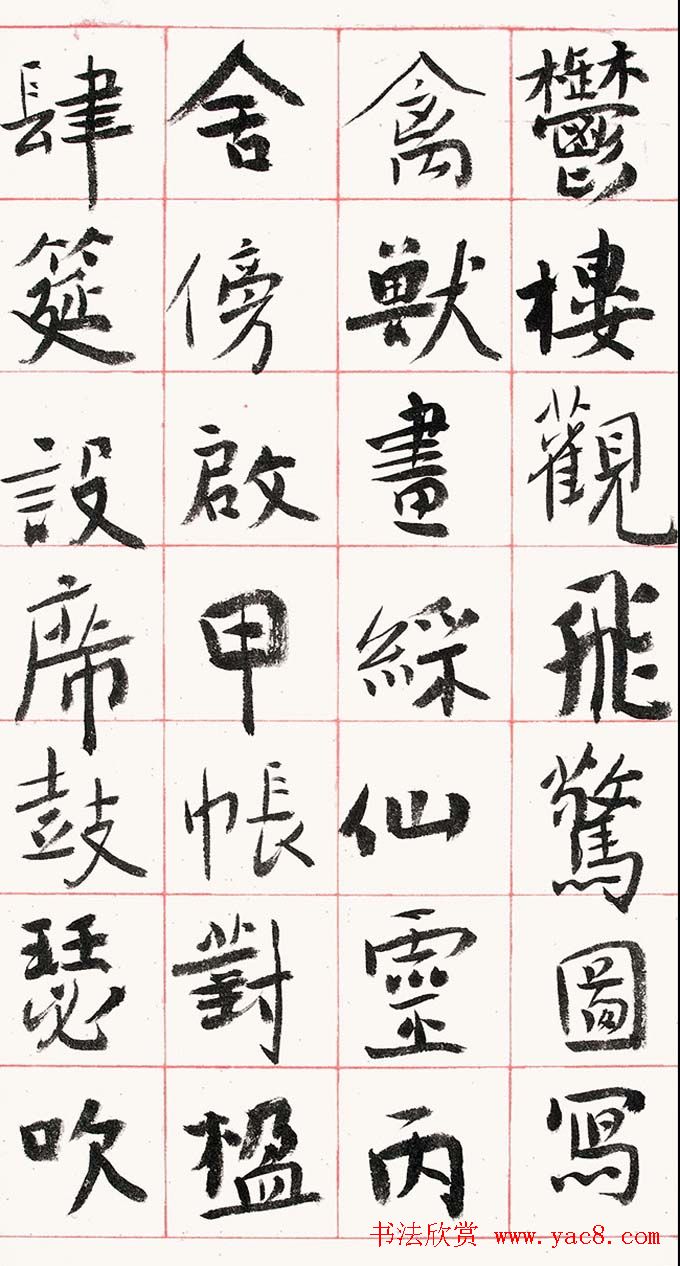 鬱樓觀飛驚圖寫
禽獸畫綵仙靈丙
舍傍啟甲帳對楹
肆筵設席鼓瑟吹
书法欣赏 www.yac8.com